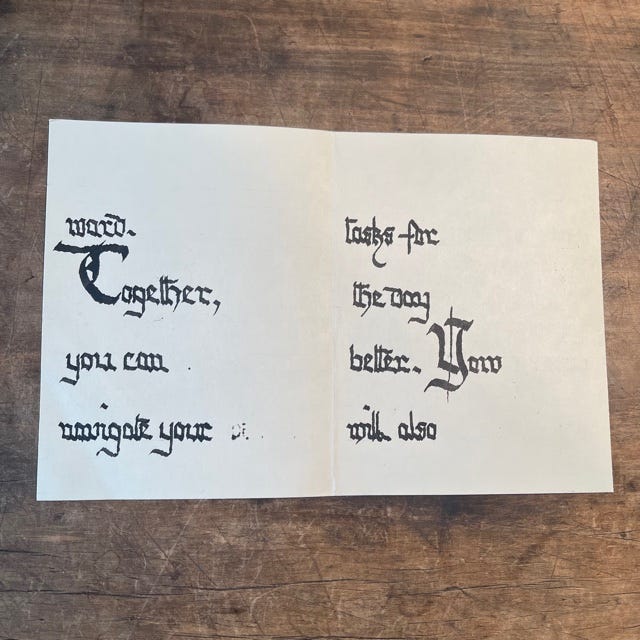 ward.
Together,
you can
navigate your
tasks for
the day
better. You
will also